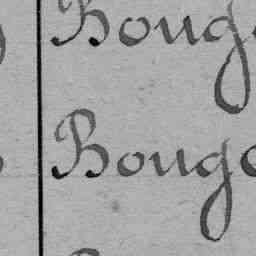 Boug
Bouge